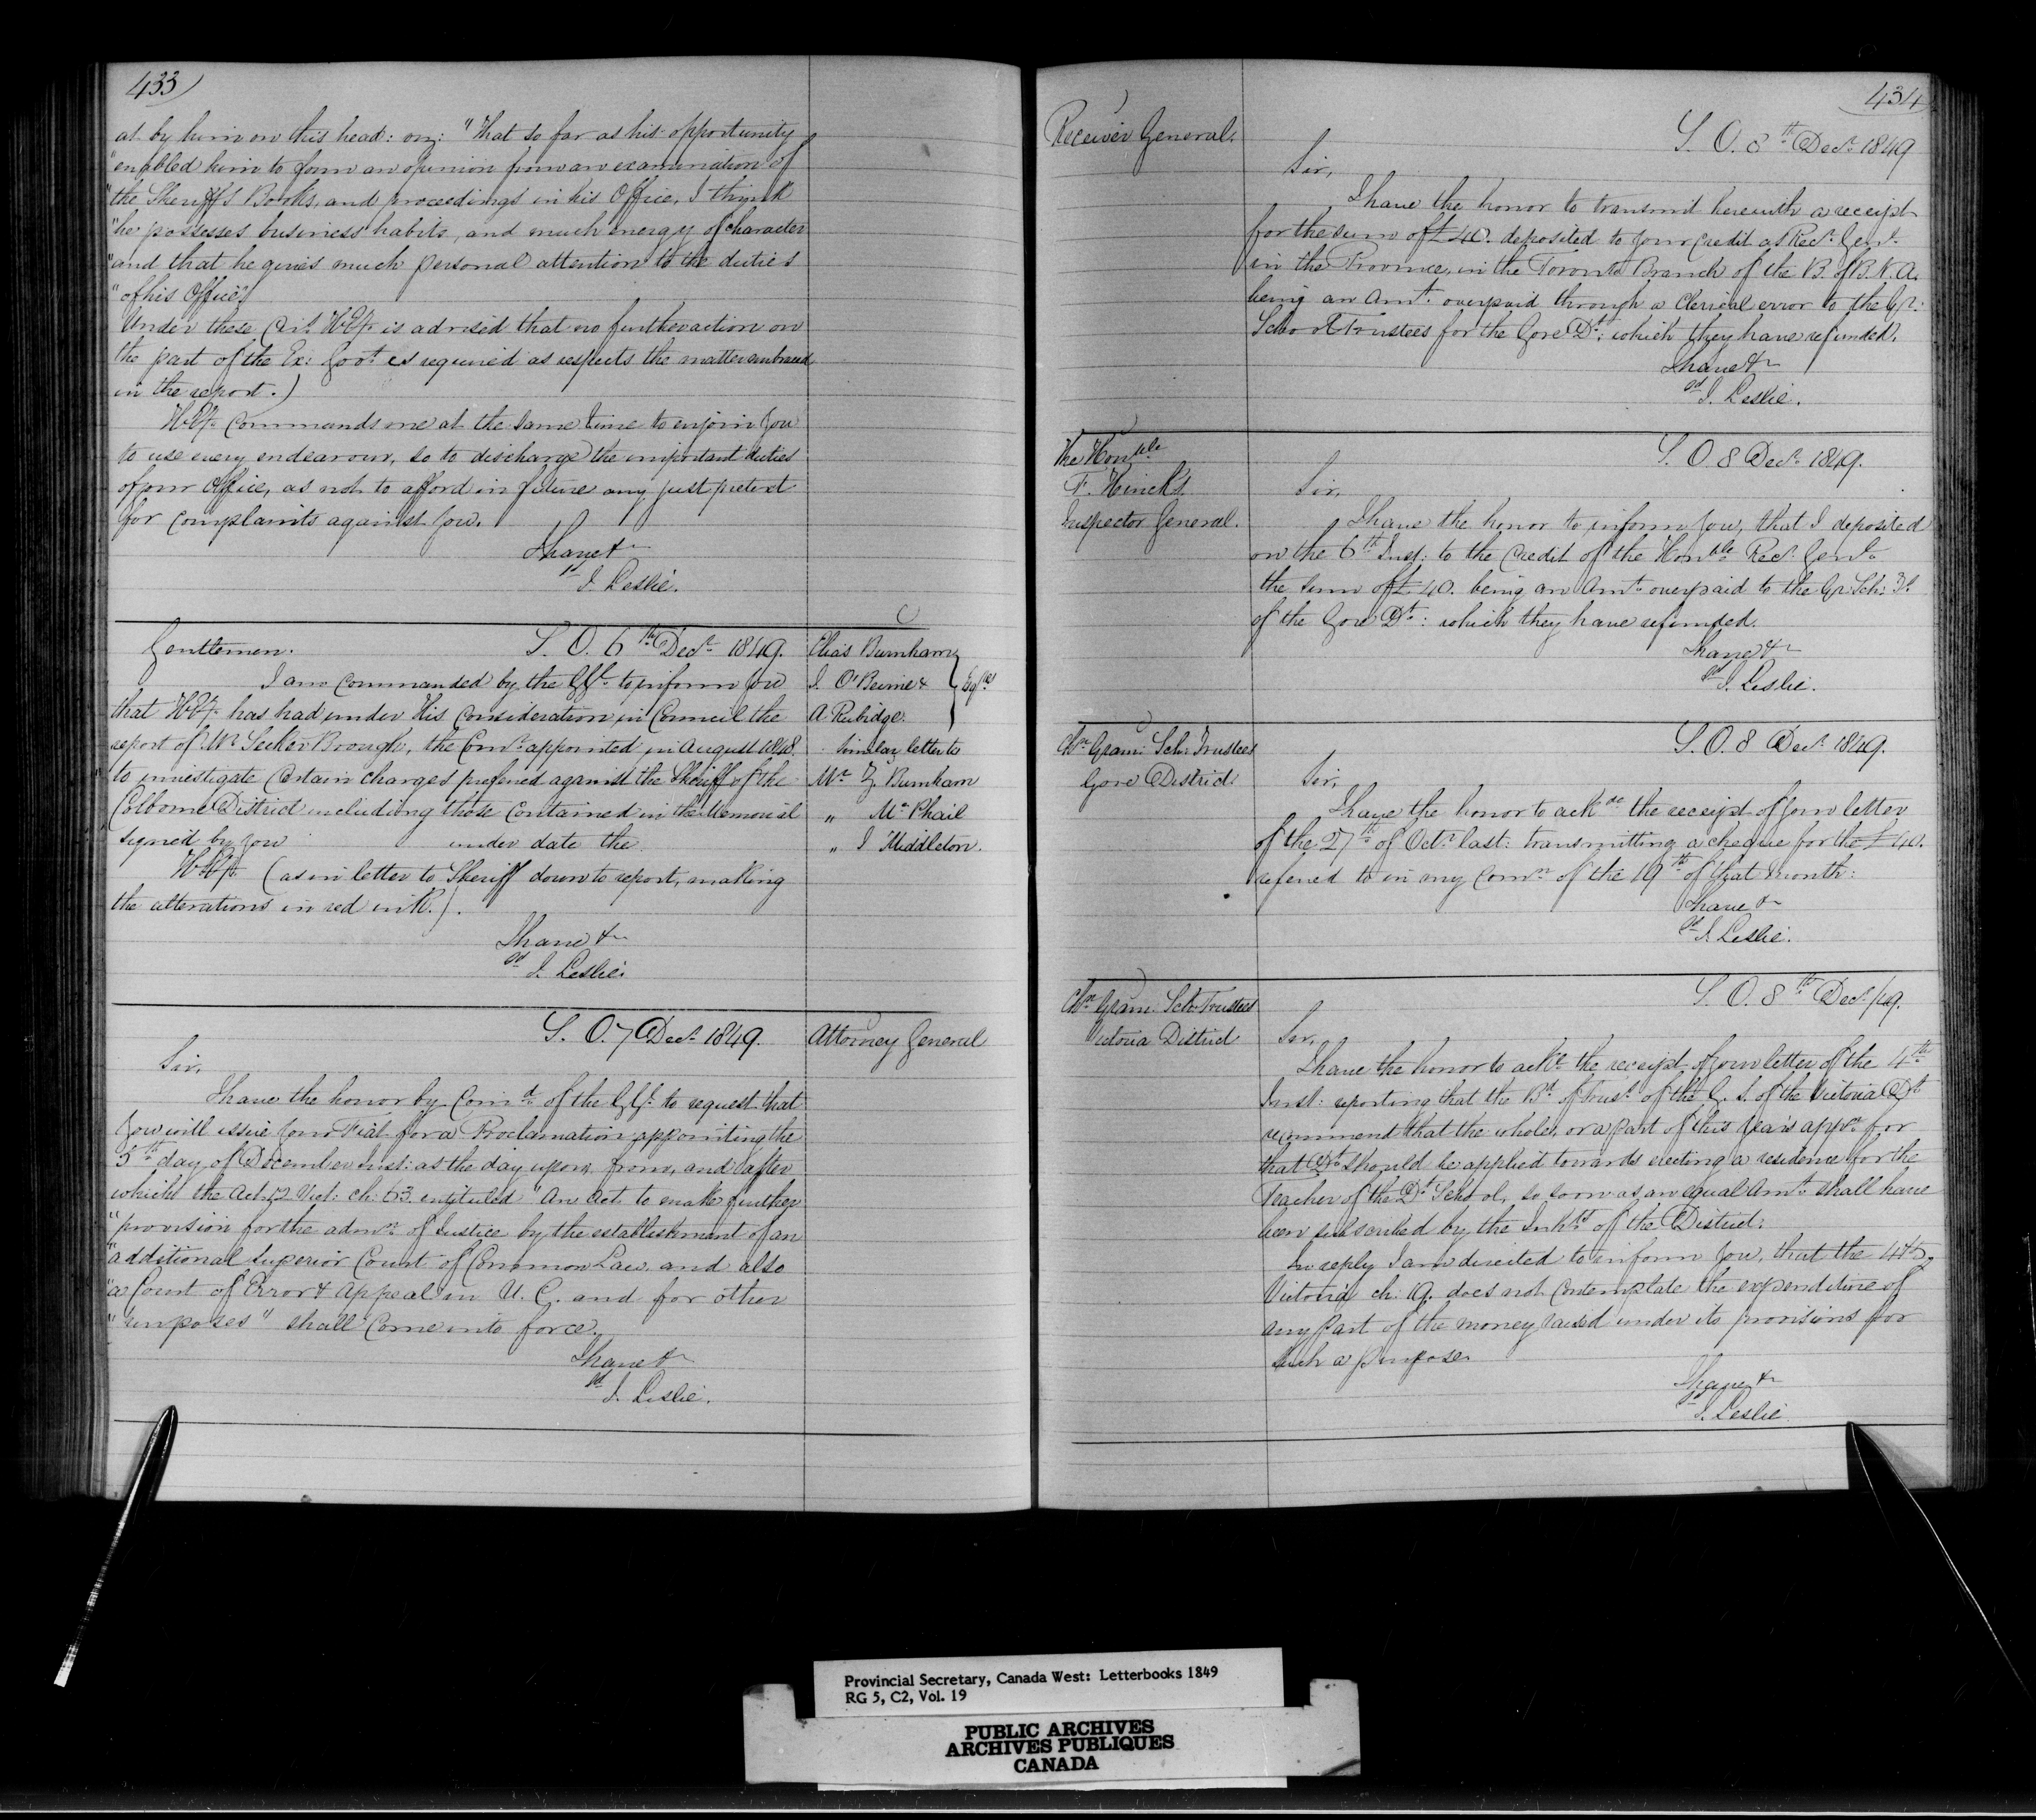 433
at by him on this head: viz: "That so far as his opportunity
"enabled him to form an opinion from an examination of
"the Sheriffs Books, and proceedings in his Office, I think
"he possesses business habits, and much energy of character
"and that he gives much personal attention to the duties
"of his Office"
Under these Cirs HEx. is advised that no further action on
the part of the Ex: Govt is required as respects the matter embraced
in the report.)
HEx. Commands me at the same time to enjoin you
to use every endeavour, so to discharge the important duties
of your Office, as not to afford in future any just pretext
for complaints against you.
I have &c
sd J. Leslie.
Gentlemen. S. O. 6th Decr 1849.
Elias Burnham
J. O'Beirne &
A. Rubidge. Esqres
Similar letter to
Mr Z. Burnham
" McPhail
" J Middleton.
I am Commanded by the GG. to inform you
that HEx. has had under His Consideration in Council the
report of Mr Secker Brough, the Comr appointed in August 1848.
to investigate Certain charges preferred against the Sheriff of the
Colborne District including those Contained in the Memorial
signed by you under date the
HEx. (as in letter to Sheriff down to report, making
the alterations in red ink.).
I have &c
sd J. Leslie.
S. O. 7 Decr 1849.
Attorney General
Sir,
I have the honor by Comd of the GG. to request that
you will issue your Fiat for a Proclamation appointing the
5th day of December Inst: as the day upon, from, and after
which the Act 12 Vict: ch: 63. entituled "An Act to make further
"provision for the admn of Justice by the establishment of an
"additional Superior Court of Common Law, and also
"a Court of Error & Appeal in U. C. and for other
"purposes" shall Come into force.
I have &c
sd J. Leslie.
434
Receiver General.
S. O. 8th Decr 1849
Sir,
I have the honor to transmit herewith a receipt
for the sum of £40. deposited to your Credit as Recr Genl
in the Province, in the Toronto Branch of the B. of B. N. A.
being an Amt overpaid through a Clerical error to the Gr:
School Trustees for the Gore Dt: which they have refunded.
I have &c
sd J. Leslie.
The Honble
F. Hincks
Inspector General.
S. O. 8 Decr 1849.
Sir,
I have the honor to inform you, that I deposited
on the 6th Inst: to the Credit of the Honble Recr Genl
the sum of £40. being an Amt overpaid to the Gr: Sch: Ts
of the Gore Dt: which they have refunded.
I have &c
sd J. Leslie.
Chn Gram: Sch: Trustees
Gore District
S. O. 8 Decr 1849.
Sir,
I have the honor to ackge the receipt of your letter
of the 27th of Octr last: transmitting a cheque for the £40.
referred to in my Comn of the 19th of that Month:
I have &c
sd J. Leslie.
Chn Gram: Sch: Trustees
Victoria District
S. O. 8th Decr /49.
Sir,
I have the honor to ackge the receipt of your letter of the 4th
Inst: reporting that the Bd of Trusts of the G. S. of the Victoria Dt
recommend that the whole, or a part of this year's appn for
that Dt should be applied towards erecting a residence for the
Teacher of the Dt School, so soon as an equal Amt shall have
been subscribed by the Inhts of the District:
In reply I am directed to inform you, that the 4 & 5
Victoria ch: 19. does not Contemplate the expenditure of
any part of the money raised under its provisions for
such a purpose.
I have &c
sd J. Leslie
Provincial Secretary, Canada West: Letterbooks 1849
RG 5, C2, Vol. 19
PUBLIC ARCHIVES
ARCHIVES PUBLIQUES
CANADA